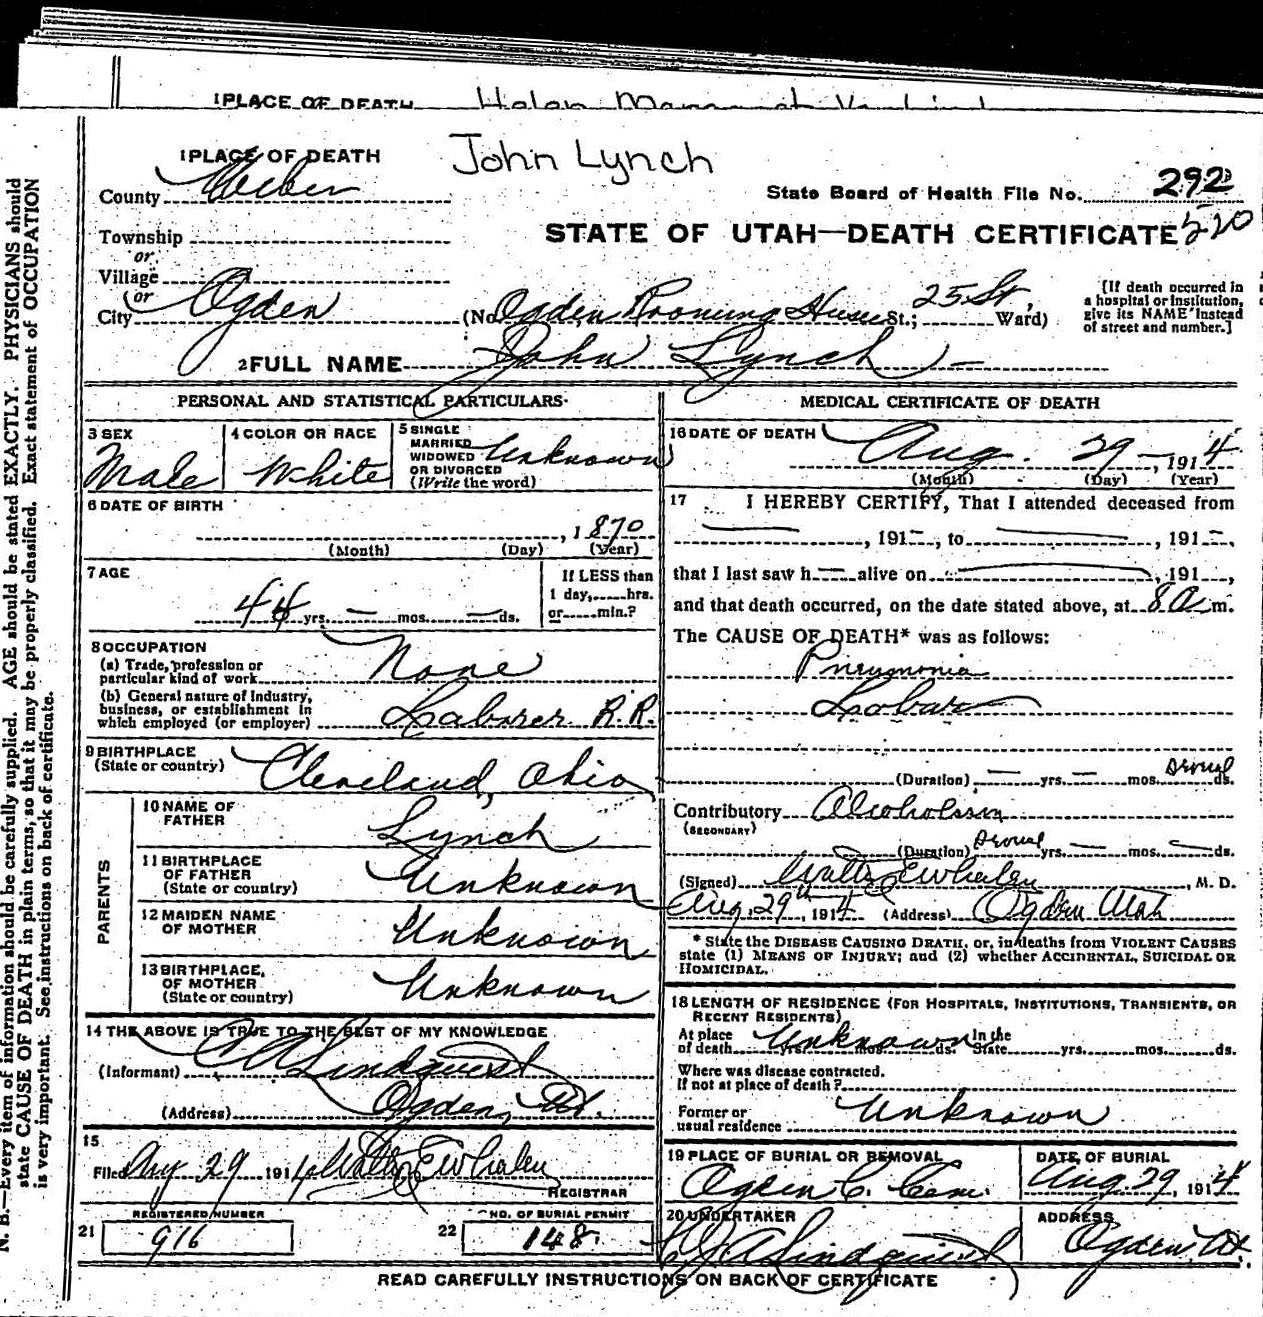 1 PLACE OF DEATH
John Lynch
1 PLACE OF DEATH
County Weber
State Board of Health File No. 292
520
Township
STATE OF UTAH—DEATH CERTIFICATE
or
Village
or
City Ogden (No. Ogden Rooming House 25 St. St.; Ward)
[If death occurred in
a hospital or institution,
give its NAME instead
of street and number.]
2 FULL NAME John Lynch
PERSONAL AND STATISTICAL PARTICULARS
3 SEX
Male
4 COLOR OR RACE
White
5 SINGLE
MARRIED
WIDOWED
OR DIVORCED
(Write the word)
Unknown
6 DATE OF BIRTH
, 1870
(Month) (Day) (Year)
7 AGE
44 yrs. — mos. — ds.
If LESS than
1 day, hrs.
or min.?
8 OCCUPATION
(a) Trade, profession or
particular kind of work None
(b) General nature of Industry,
business, or establishment in
which employed (or employer) Laborer R.R.
9 BIRTHPLACE
(State or country) Cleveland, Ohio
PARENTS
10 NAME OF
FATHER Lynch
11 BIRTHPLACE
OF FATHER
(State or country) Unknown
12 MAIDEN NAME
OF MOTHER Unknown
13 BIRTHPLACE
OF MOTHER
(State or country) Unknown
14 THE ABOVE IS TRUE TO THE BEST OF MY KNOWLEDGE
(Informant) Lindquist
(Address) Ogden, Ut.
15
Filed Aug 29 1914 Walter E Whalen
REGISTRAR
21 REGISTERED NUMBER
916
22 NO. OF BURIAL PERMIT
148
MEDICAL CERTIFICATE OF DEATH
16 DATE OF DEATH
Aug. 29 —, 1914
(Month) (Day) (Year)
17 I HEREBY CERTIFY, That I attended deceased from
—, 191—, to —, 191—,
that I last saw h— alive on —, 191 ,
and that death occurred, on the date stated above, at 8 a m.
The CAUSE OF DEATH* was as follows:
Pneumonia
Lobar
(Duration) — yrs. — mos. Several ds.
Contributory Alcoholism
(SECONDARY)
(Duration) Several yrs. — mos. — ds.
(Signed) Walter E Whalen, M. D.
Aug. 29th, 1914 (Address) Ogden Utah
* State the DISEASE CAUSING DEATH, or, in deaths from VIOLENT CAUSES
state (1) MEANS OF INJURY; and (2) whether ACCIDENTAL, SUICIDAL OR
HOMICIDAL.
18 LENGTH OF RESIDENCE (FOR HOSPITALS, INSTITUTIONS, TRANSIENTS, OR
RECENT RESIDENTS)
At place
of death Unknown yrs. mos. ds.
In the
State yrs. mos. ds.
Where was disease contracted,
If not at place of death?
Former or
usual residence Unknown
19 PLACE OF BURIAL OR REMOVAL
Ogden C. Cem.
DATE OF BURIAL
Aug. 29, 1914
20 UNDERTAKER
Lindquist
ADDRESS
Ogden Ut.
READ CAREFULLY INSTRUCTIONS ON BACK OF CERTIFICATE
N. B.—Every item of information should be carefully supplied. AGE should be stated EXACTLY. PHYSICIANS should
state CAUSE OF DEATH in plain terms, so that it may be properly classified. Exact statement of OCCUPATION
is very important. See instructions on back of certificate.